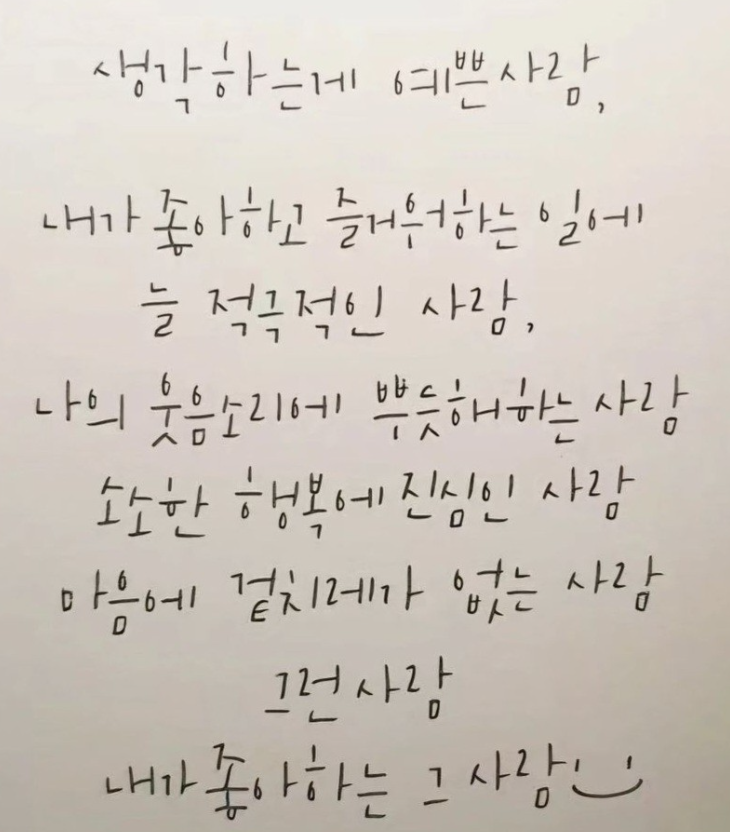 생각하는게 예쁜사람,
내가 좋아하고 즐거워하는 일에
늘 적극적인 사람,
나의 웃음소리에 뿌듯해하는 사람
소소한 행복에 진심인 사람
마음에 겉치레가 없는 사람
그런 사람
내가 좋아하는 그 사람